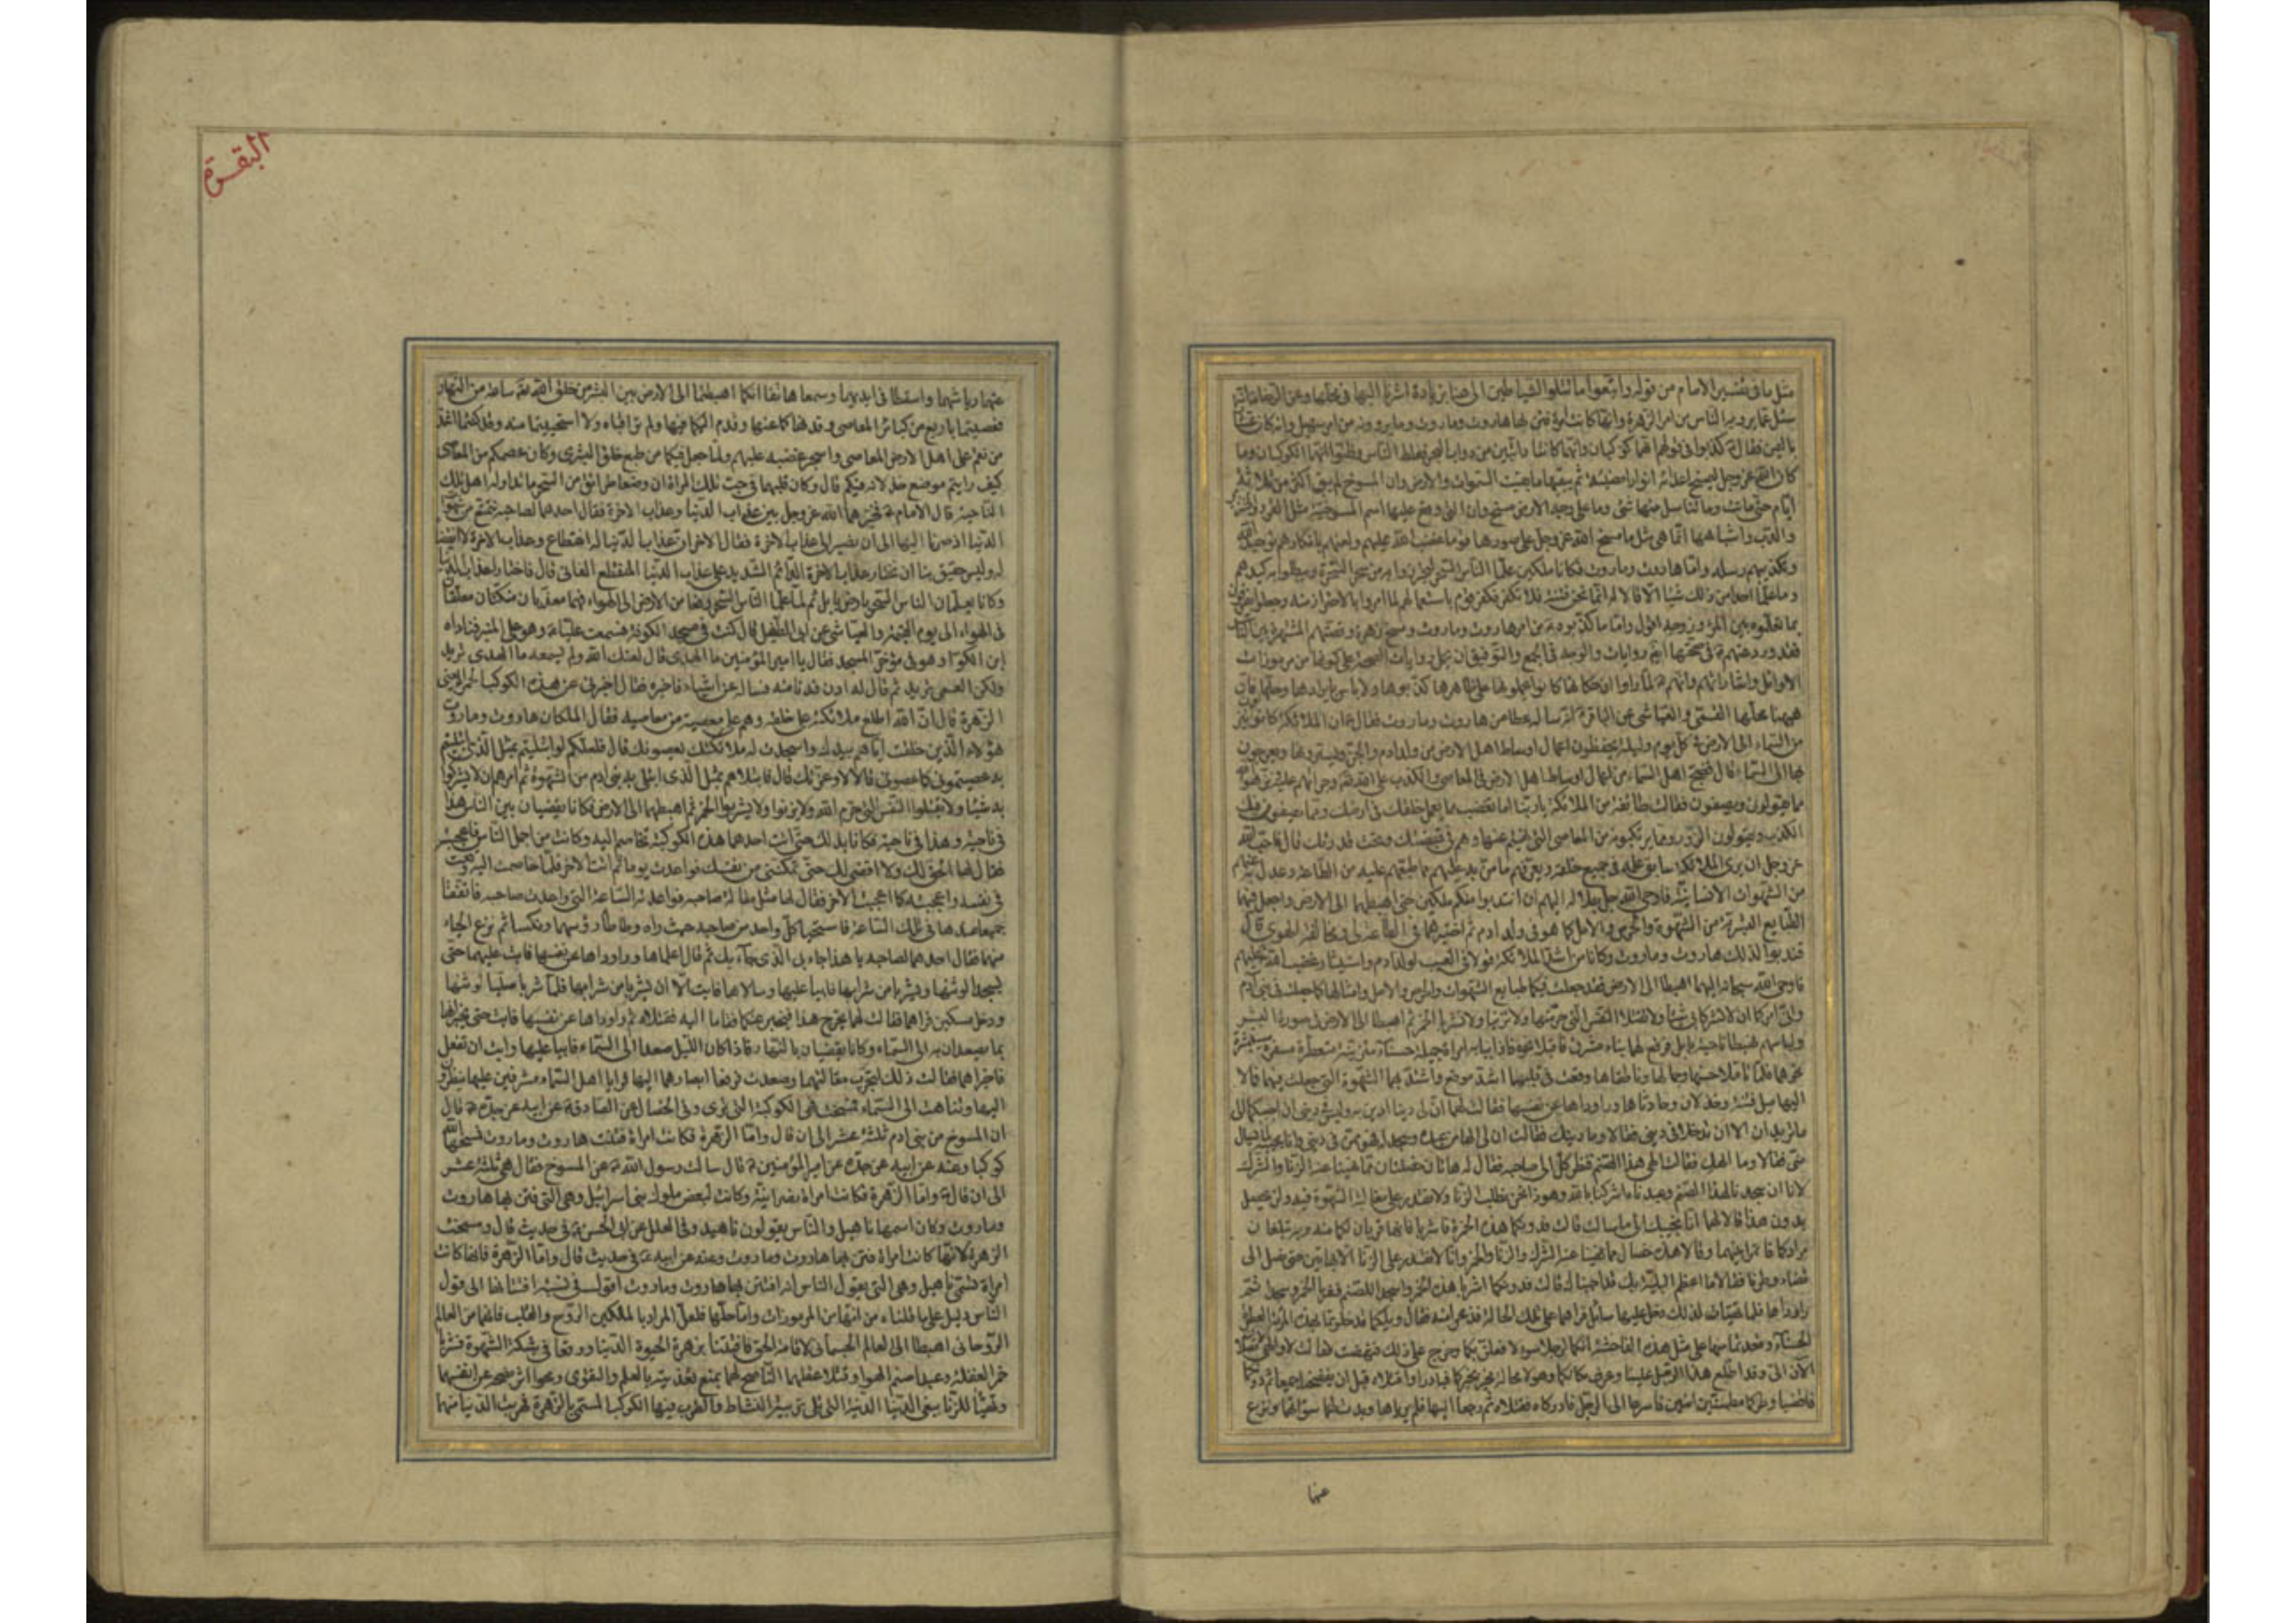 مثل ما في تفسير الامام من قوله واتبعوا ما تتلوا الشياطين الى هنا بزيادة اشرنا اليها في محلها وعن الرضا انه
سئل عما يرويه الناس من امر الزهرة وانها كانت امرأة فتن بها هاروت وماروت وما يروونه من امر سهيل وانه كان عشارا
باليمن فقال كذبوا في قولهم انهما كوكبان وانما كانتا دابتين من دواب البحر فغلط الناس وظنوا انهما الكوكبان وما
كان الله عز وجل ليمسخ اعداءه انوارا مضيئة ثم يبقيها ما بقيت السموات والارض وان المسوخ لم يبق اكثر من ثلاثة
ايام حتى ماتت وما تناسل منها شئ وما على وجه الارض مسخ وان التي وقع عليها اسم المسوخية مثل القرد والخنزير
والدب واشباهها انما هي مثل ما مسخ الله عز وجل على صورها قوما غضب الله عليهم ولعنهم بانكارهم توحيد الله
وتكذيبهم رسله واما هاروت وماروت فكانا ملكين علما الناس السحر ليحترزوا به من سحر السحرة ويبطلوا به كيدهم
وما علما احدا من ذلك شيئا الا قالا له انما نحن فتنة فلا تكفر فكفر قوم باستعمالهم لما امروا بالاحتراز منه وجعلوا يفرقون
بما تعلموه بين المرء وزوجه اقول واما ما كذبوه من امر هاروت وماروت ومسخ زهرة وقصتهم المشتهرة بين الناس
فقد ورد عنهم في صحتها ايضا روايات والوجه في الجمع والتوفيق ان يحمل روايات الصحة على كونها من مرموزات
الاوائل واشاراتهم وانهم لما راوا ان حكاتها كانوا يحملونها على ظاهرها كذبوها ولا باس بايرادها وحلها فان
هيهنا محلها القمي والعياشي عن الباقر انه ساله عطا عن هاروت وماروت فقال ان الملائكة كانوا ينزلون
من السماء الى الارض في كل يوم وليلة يحفظون اعمال اوساط اهل الارض من ولد ادم والجن ويسترونها ويعرجون
بها الى السماء قال فضج اهل السماء من اعمال اوساط اهل الارض في المعاصي والكذب على الله تعه وجراتهم عليه ونزهوا الله
مما يقولون ويصفون فقالت طائفة من الملائكة يا ربنا اما تغضب مما يعمل خلقك في ارضك ومما يصفون فيك
الكذب ويقولون الزور ومما يرتكبونه من المعاصي التي نهيتهم عنها وهم في قبضتك وتحت قدرتك قال فاحب الله
عز وجل ان يرى الملائكة سابق علمه في جميع خلقه ويعرفهم ما من به عليهم مما طبعهم عليه من الطاعة وعدل به عنهم
من الشهوات الانسانية فاوحى الله جل جلاله اليهم ان انتدبوا منكم ملكين حتى اهبطهما الى الارض واجعل فيهما
الطبايع البشرية من الشهوة والحرص والامل كما هو في ولد ادم ثم اختبرهما في الطاعة لي ومخالفة الهوى قال
فندبوا لذلك هاروت وماروت وكانا من اشد الملائكة قولا في العيب لولد ادم واستيثار غضب الله عليهم
فاوحى الله سبحانه اليهما اهبطا الى الارض فقد جعلت فيكما طبايع الشهوات والحرص والامل وامثالها كما جعلت في بني آدم
واني آمركما ان لا تشركا بي شيئا ولا تقتلا النفس التي حرمتها ولا تزنيا ولا تشربا الخمر ثم اهبطا الى الارض في صورة البشر
ولباسهم فهبطا ناحية بابل فرفع لهما بناء مشرف فاقبلا نحوه فاذا ببابه امرأة جميلة حسناء مزينة متعطرة مسفرة مستبشرة
نحوهما فلما تاملا حسنها وجمالها وناطقاها وقعت في قلبهما اشد موقع واشتد بهما الشهوة التي جعلت فيهما فمالا
اليها ميل فتنة وخذلان وحادثاها وراوداها عن نفسها فقالت لهما ان لي دينا ادين به وليس في ديني ان اجيبكما الى
ما تريدان الا ان تدخلا في ديني فقالا وما دينك فقالت ان لي الها من عبده وسجد له فهو ممن في ديني وانا مجيبه لما يسال
مني فقالا وما الهك فقالت الهي هذا الصنم فنظر كل الى صاحبه فقال له هاتان خصلتان مما نهينا عنه الزنا والشرك
لانا ان سجدنا لهذا الصنم وعبدناه اشركنا بالله وهو ذا نحن نطلب الزنا ولا نقدر على مغالبة الشهوة فيه ولن يحصل
بدون هذا قالا لها انا نجيبك الى ما سالت قالت فدونكما هذه الخمرة فاشربا فانها قربان لكما منه وبه تبلغان
مرادكما فائتمرا بينهما وقالا هذه خصال مما نهينا عنه الشرك والزنا والخمر وانا لا نقدر على الزنا الا بهاتين حتى نصل الى
قضاء وطرنا فقالا ما اعظم البلية بك قد اجبناك قالت فدونكما اشربا هذه الخمر واسجدا للصنم فشربا الخمر وسجدا ثم
راوداها فلما تهيات لذلك دخل عليهما سائل فراهما على تلك الحالة فذعرا منه فقال ويلكما قد خلوتما بهذه المرأة العطرة
الحسناء وقعدتما منها على مثل هذه الفاحشة انكما لرجلا سوء لافعلن بكما وخرج على ذلك فنهضت فقالت لا والهي لا تصلا
الآن الي وقد اطلع هذا الرجل علينا وعرف مكانكما وهو لا محالة يخبر بخبركما فبادرا واقتلاه قبل ان يفضحنا جميعا ثم دونكما
فاقضيا وطركما مطمئنين امنين فاسرعا الى الرجل فادركاه فقتلاه ثم رجعا اليها فلم يرياها وبدت لهما سوآتهما ونزع
عنهما
البقرة
عنهما رياشهما واسقطا في ايديهما وسمعا هاتفا انكما اهبطتما الى الارض بين البشر من خلق الله تعه ساعة من النهار
فعصيتما باربع من كبائر المعاصي وقد نهاكما عنها وقدم اليكما فيها ولم تراقباه ولا استحييتما منه وقد كنتما اشد
من نقم على اهل الارض المعاصي واسجر غضبه عليهم ولما جعل فيكما من طبع خلق البشرى وكان عصمكم من المعاصي
كيف رايتم موضع خذلانه فيكم قال وكان قلبهما في حب تلك المراة ان وضعا طرائق من السحر ما تداوله اهل تلك
الناحية قال الامام فخيرهما الله عز وجل بين عذاب الدنيا وعذاب الاخرة فقال احدهما لصاحبه نتمتع من شهوات
الدنيا اذ صرنا اليها الى ان نصير الى عذاب الاخرة فقال الاخر ان عذاب الدنيا له انقطاع وعذاب الاخرة لا انقضاء
له وليس حقيق بنا ان نختار عذاب الاخرة الدائم الشديد على عذاب الدنيا المنقطع الفاني قال فاختارا عذاب الدنيا
وكانا يعلمان الناس السحر بارض بابل ثم لما علما الناس السحر رفعا من الارض الى الهواء فهما معذبان منكسان معلقان
في الهواء الى يوم القيمة والعياشي عن ابي الطفيل قال كنت في مسجد الكوفة فسمعت عليا وهو على المنبر فناداه
ابن الكوا وهو في مؤخر المسجد فقال يا امير المؤمنين ما الهدى قال لعنك الله ولم تسمعه ما الهدى تريد
ولكن العمى تريد ثم قال له ادن فدنا منه فساله عن اشياء فاخبره فقال اخبرني عن هذه الكوكبة الحمراء يعني
الزهرة قال ان الله اطلع ملائكته على خلقه وهم على معصية من معاصيه فقال الملكان هاروت وماروت
هؤلاء الذين خلقت اباهم بيدك واسجدت له ملائكتك يعصونك قال فلعلكم لو ابتليتم بمثل الذي ابتليتهم
به عصيتموني كما عصوني قالا لا وعزتك قال فابتلاهم بمثل الذي ابتلى به بني ادم من الشهوة ثم امرهما ان لا يشركوا
به شيئا ولا يقتلوا النفس التي حرم الله ولا يزنوا ولا يشربوا الخمر ثم اهبطهما الى الارض فكانا يقضيان بين الناس هذا
في ناحية وهذا في ناحية فكانا بذلك حتى اتت احدهما هذه الكوكبة تخاصم اليه وكانت من اجمل الناس فاعجبته
فقال لها الحق لك ولا اقضي لك حتى تمكنني من نفسك فواعدت يوما ثم اتت الاخر فلما خاصمت اليه وقعت
في نفسه واعجبته كما اعجبت الاخر فقال لها مثل مقالة صاحبه فواعدته الساعة التي واعدت صاحبه فاتفقا
جميعا عندها في تلك الساعة فاستحيا كل واحد من صاحبه حيث راه وطاطا رؤسهما ونكسا ثم نزع الحياء
منهما فقال احدهما لصاحبه يا هذا جاء بي الذي جاء بك ثم قال اعلماها وراوداها عن نفسها فابت عليهما حتى
يسجدا لوثنها ويشربا من شرابها فابيا عليها وسالاها فابت الا ان يشربا من شرابها فلما شربا صليا لوثنها
ودخل مسكين فراهما فقالت لهما يخرج هذا فيخبر عنكما فقاما اليه فقتلاه ثم راوداها عن نفسها فابت حتى يخبراها
بما يصعدان به الى السماء وكانا يقضيان بالنهار فاذا كان الليل صعدا الى السماء فابيا عليها وابت ان تفعل
فاخبراها فقالت ذلك لتجرب مقالتهما وصعدت فرفعا ابصارهما اليها فرايا اهل السماء مشرفين عليهما ينظرون
اليهما وتناهت الى السماء فمسخت فهي الكوكبة التي ترى وفي الخصال عن الصادق عن ابيه عن جده قال
ان المسوخ من بني ادم ثلثة عشر الى ان قال واما الزهرة فكانت امرأة فتنت هاروت وماروت فمسخها الله
كوكبا وعنه عن ابيه عن جده عن امير المؤمنين قال سالت رسول الله عن المسوخ فقال هي ثلثة عشر
الى ان قال واما الزهرة فكانت امرأة نصرانية وكانت لبعض ملوك بني اسرائيل وهي التي فتن بها هاروت
وماروت وكان اسمها ناهيل والناس يقولون ناهيد وفي العلل عن ابي الحسن في حديث قال ومسخت
الزهرة لانها كانت امراة فتن بها هاروت وماروت وعنه عن ابيه في حديث قال واما الزهرة فانها كانت
امرأة تسمى ناهيل وهي التي يقول الناس انه افتتن بها هاروت وماروت اقول في نسبة افتتانها الى قول
الناس دليل على ما قلناه من انها من المرموزات واما حلها فلعل المراد بالملكين الروح والقلب فانهما من العالم
الروحاني اهبطا الى العالم الجسماني لاقامة الحق فافتتنا بزهرة الحيوة الدنيا ووقعا في شبكة الشهوة فشربا
خمر الغفلة وعبدا صنم الهوا وقتلا عقلهما الناصح لهما بمنع تغذيته بالعلم والتقوى ومحوا اثر نصحه عن انفسهما
وتهيئا للزنا ببغي الدنيا الدنية التي تلي تربية النشاط والطرب فيها الكوكب المسمى بالزهرة فهربت الدنيا منهما